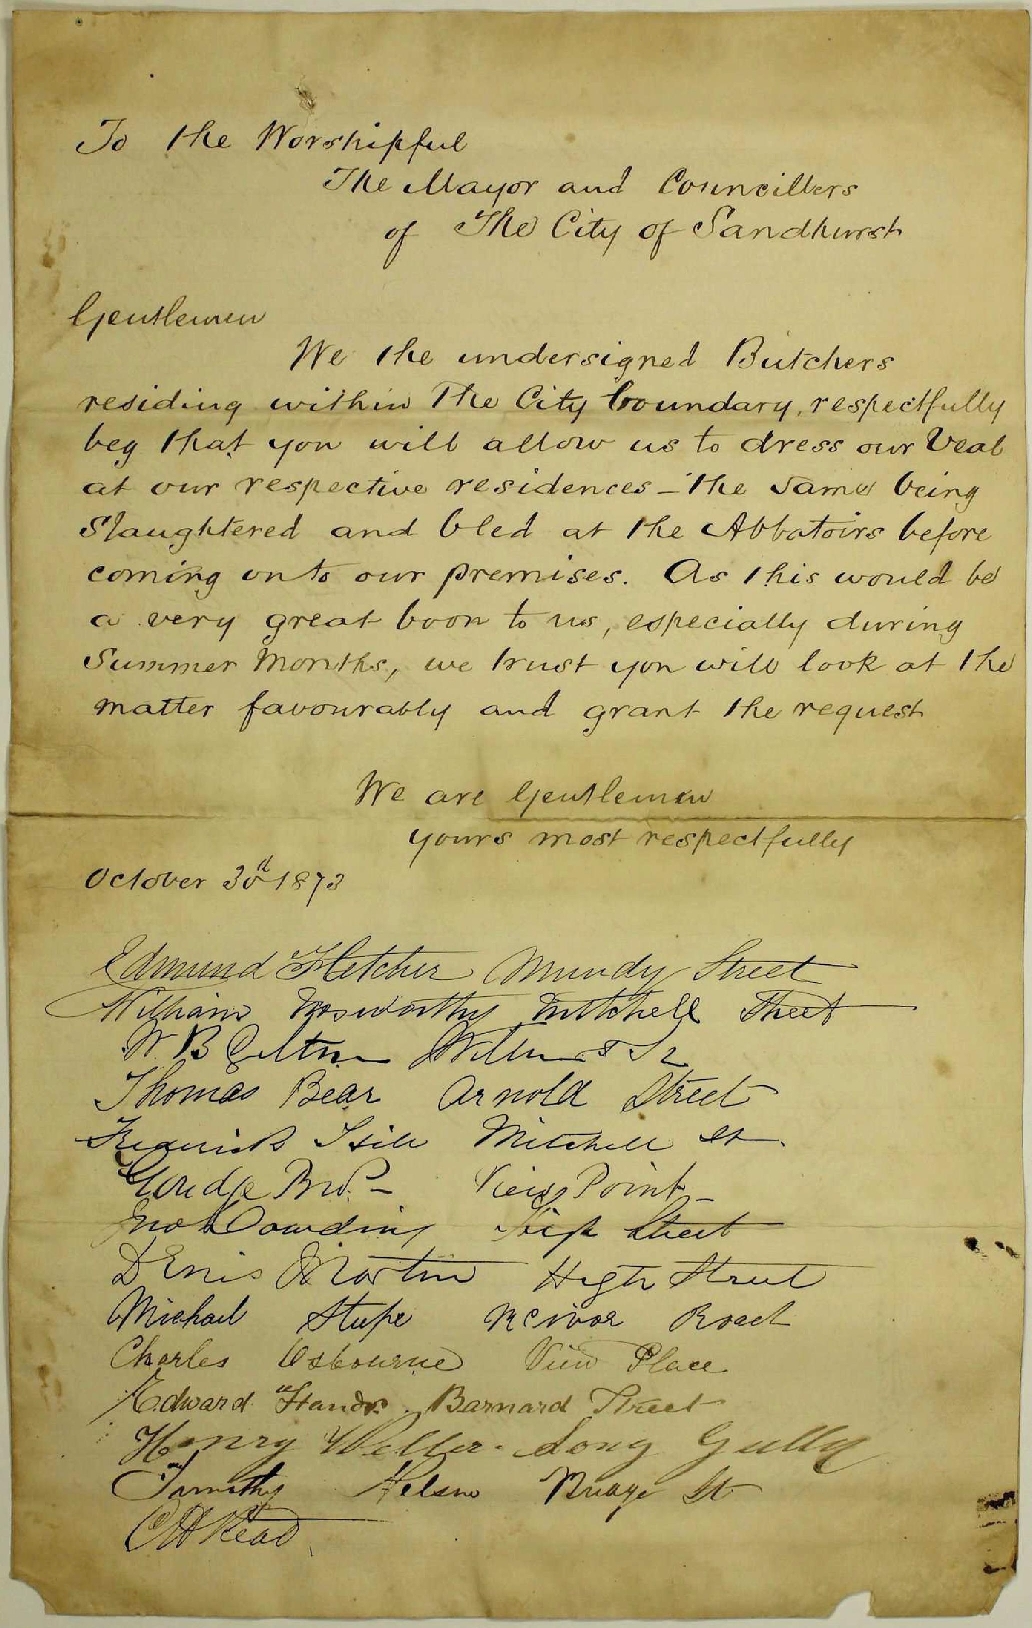 To the Worshipful
The Mayor and Councillers
of The City of Sandhurst
Gentlemen
We the undersigned Butchers
residing within The City boundary, respectfully
beg that you will allow us to dress our Veal
at our respective residences - the same being
Slaughtered and bled at the Abbatoirs before
coming onto our premises. As this would be
a very great boon to us, especially during
Summer Months, we trust you will look at the
matter favourably and grant the request
We are Gentlemen
yours most respectfully
October 30th 1873
Edmund Fletcher Mundy Street
William Mosworthy Mitchell Street
W B
Thomas Bear Arnold Street
Frederick Mitchell St.
Bros. - View Point -
Dowding High Street
Denis Martin High Street
Michael Stupe McIvor Road
Charles Osbourne View Place
Edward Hands. Barnard Street
Henry Weller. Long Gully
Timothy Nelson Bridge St
C H Read